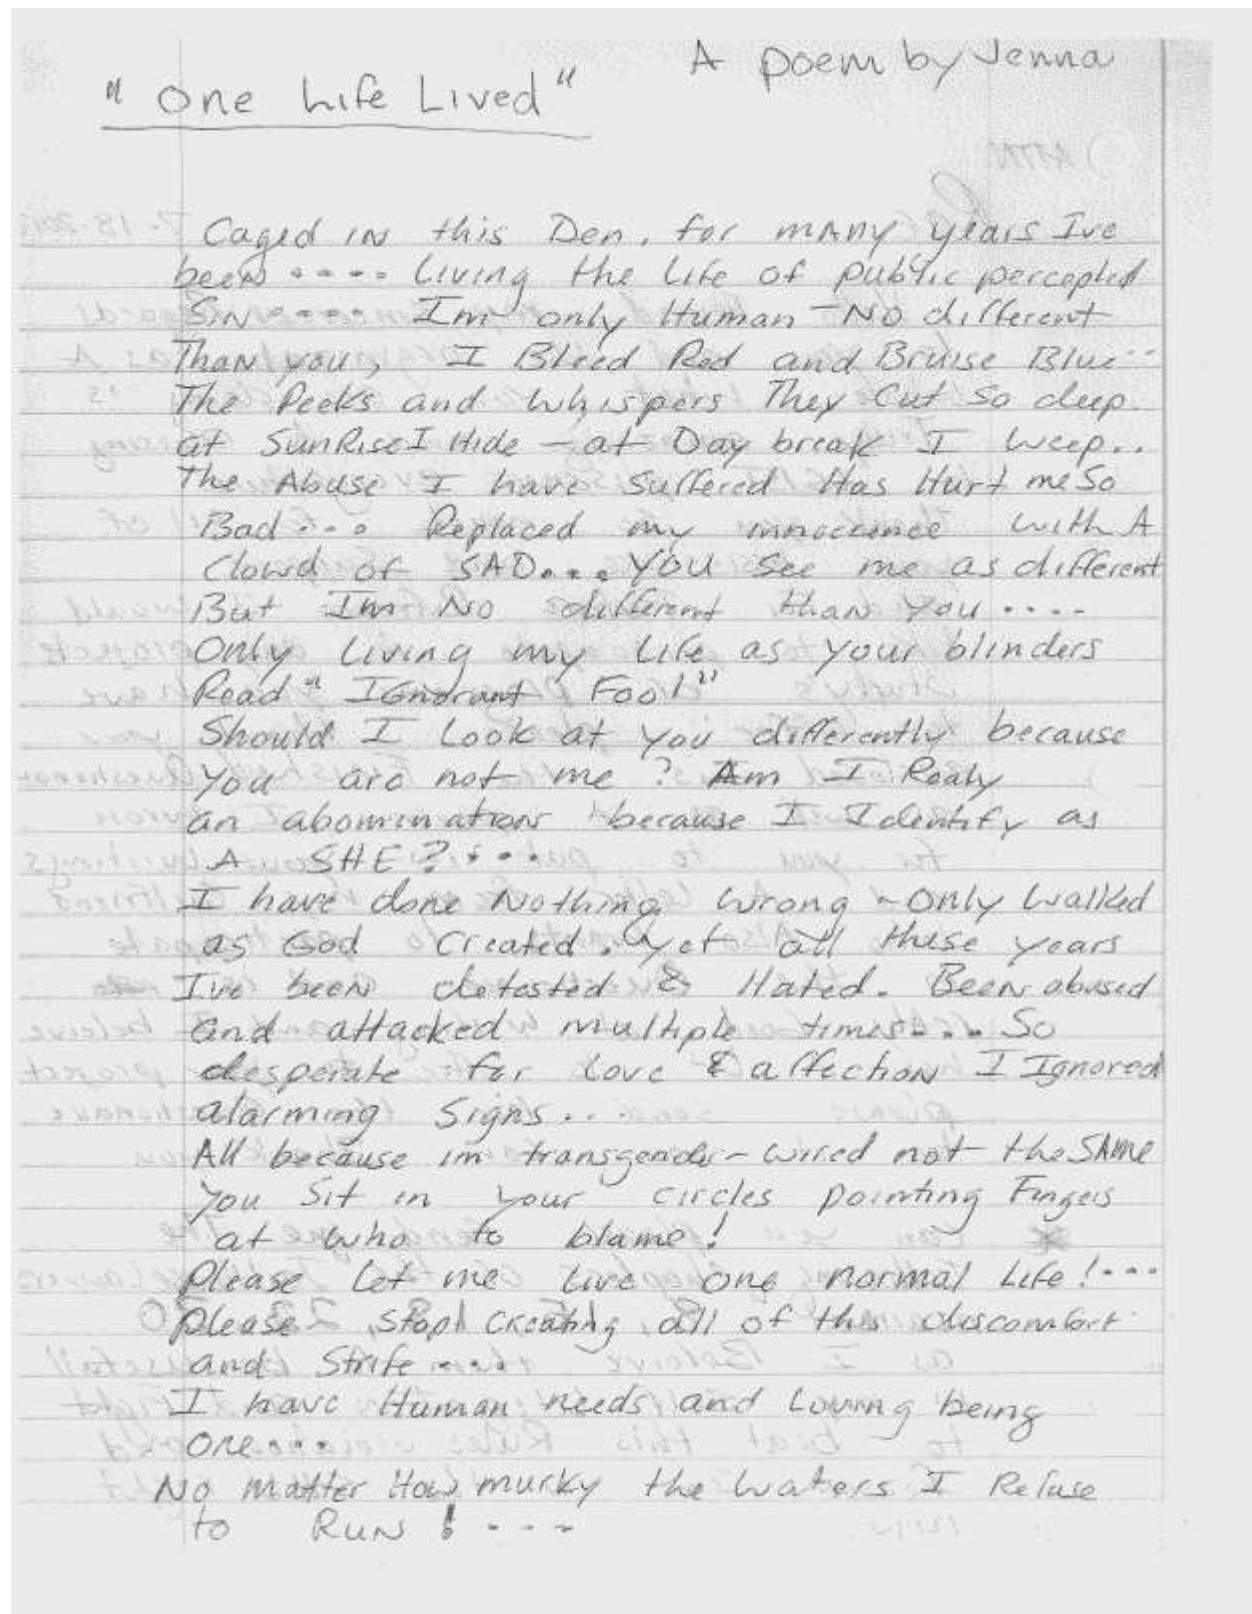 A poem by Jenna
"One Life Lived"
Caged IN this Den, for mANy years Ive
beeN .... Living the Life of public percepted
SiN..... Im only Human - No different
ThaN you, I Bleed Red and Bruise Blue..
The Peeks and Whispers They Cut So deep.
at SunRise I Hide - at Day break I weep..
The Abuse I have Suffered Has Hurt me So
Bad.... Replaced my innocence with A
Clowd of SAD.... YOU See me as different
But Im No different than you ....
Only Living my Life as your blinders
Read " IGnorant Fool"
Should I Look at you differently because
you are not me ? Am I Realy
an abomination because I Identify as
A SHE?....
I have done Nothing wrong - only walked
as God Created. yet all these years
I've beeN detested & Hated. BeeN abused
and attacked multiple times... So
desperate for Love & affectioN I Ignored
alarming Signs..
All because im transgender - wired not the SAme
you Sit in your circles pointing Fingers
at who to blame!
Please Let me Live one normal Life!...
Please stop creating all of this discomfort
and Strife ....
I have Human needs and Loving being
one....
No matter How murky the waters I Refuse
to RuN ! ...